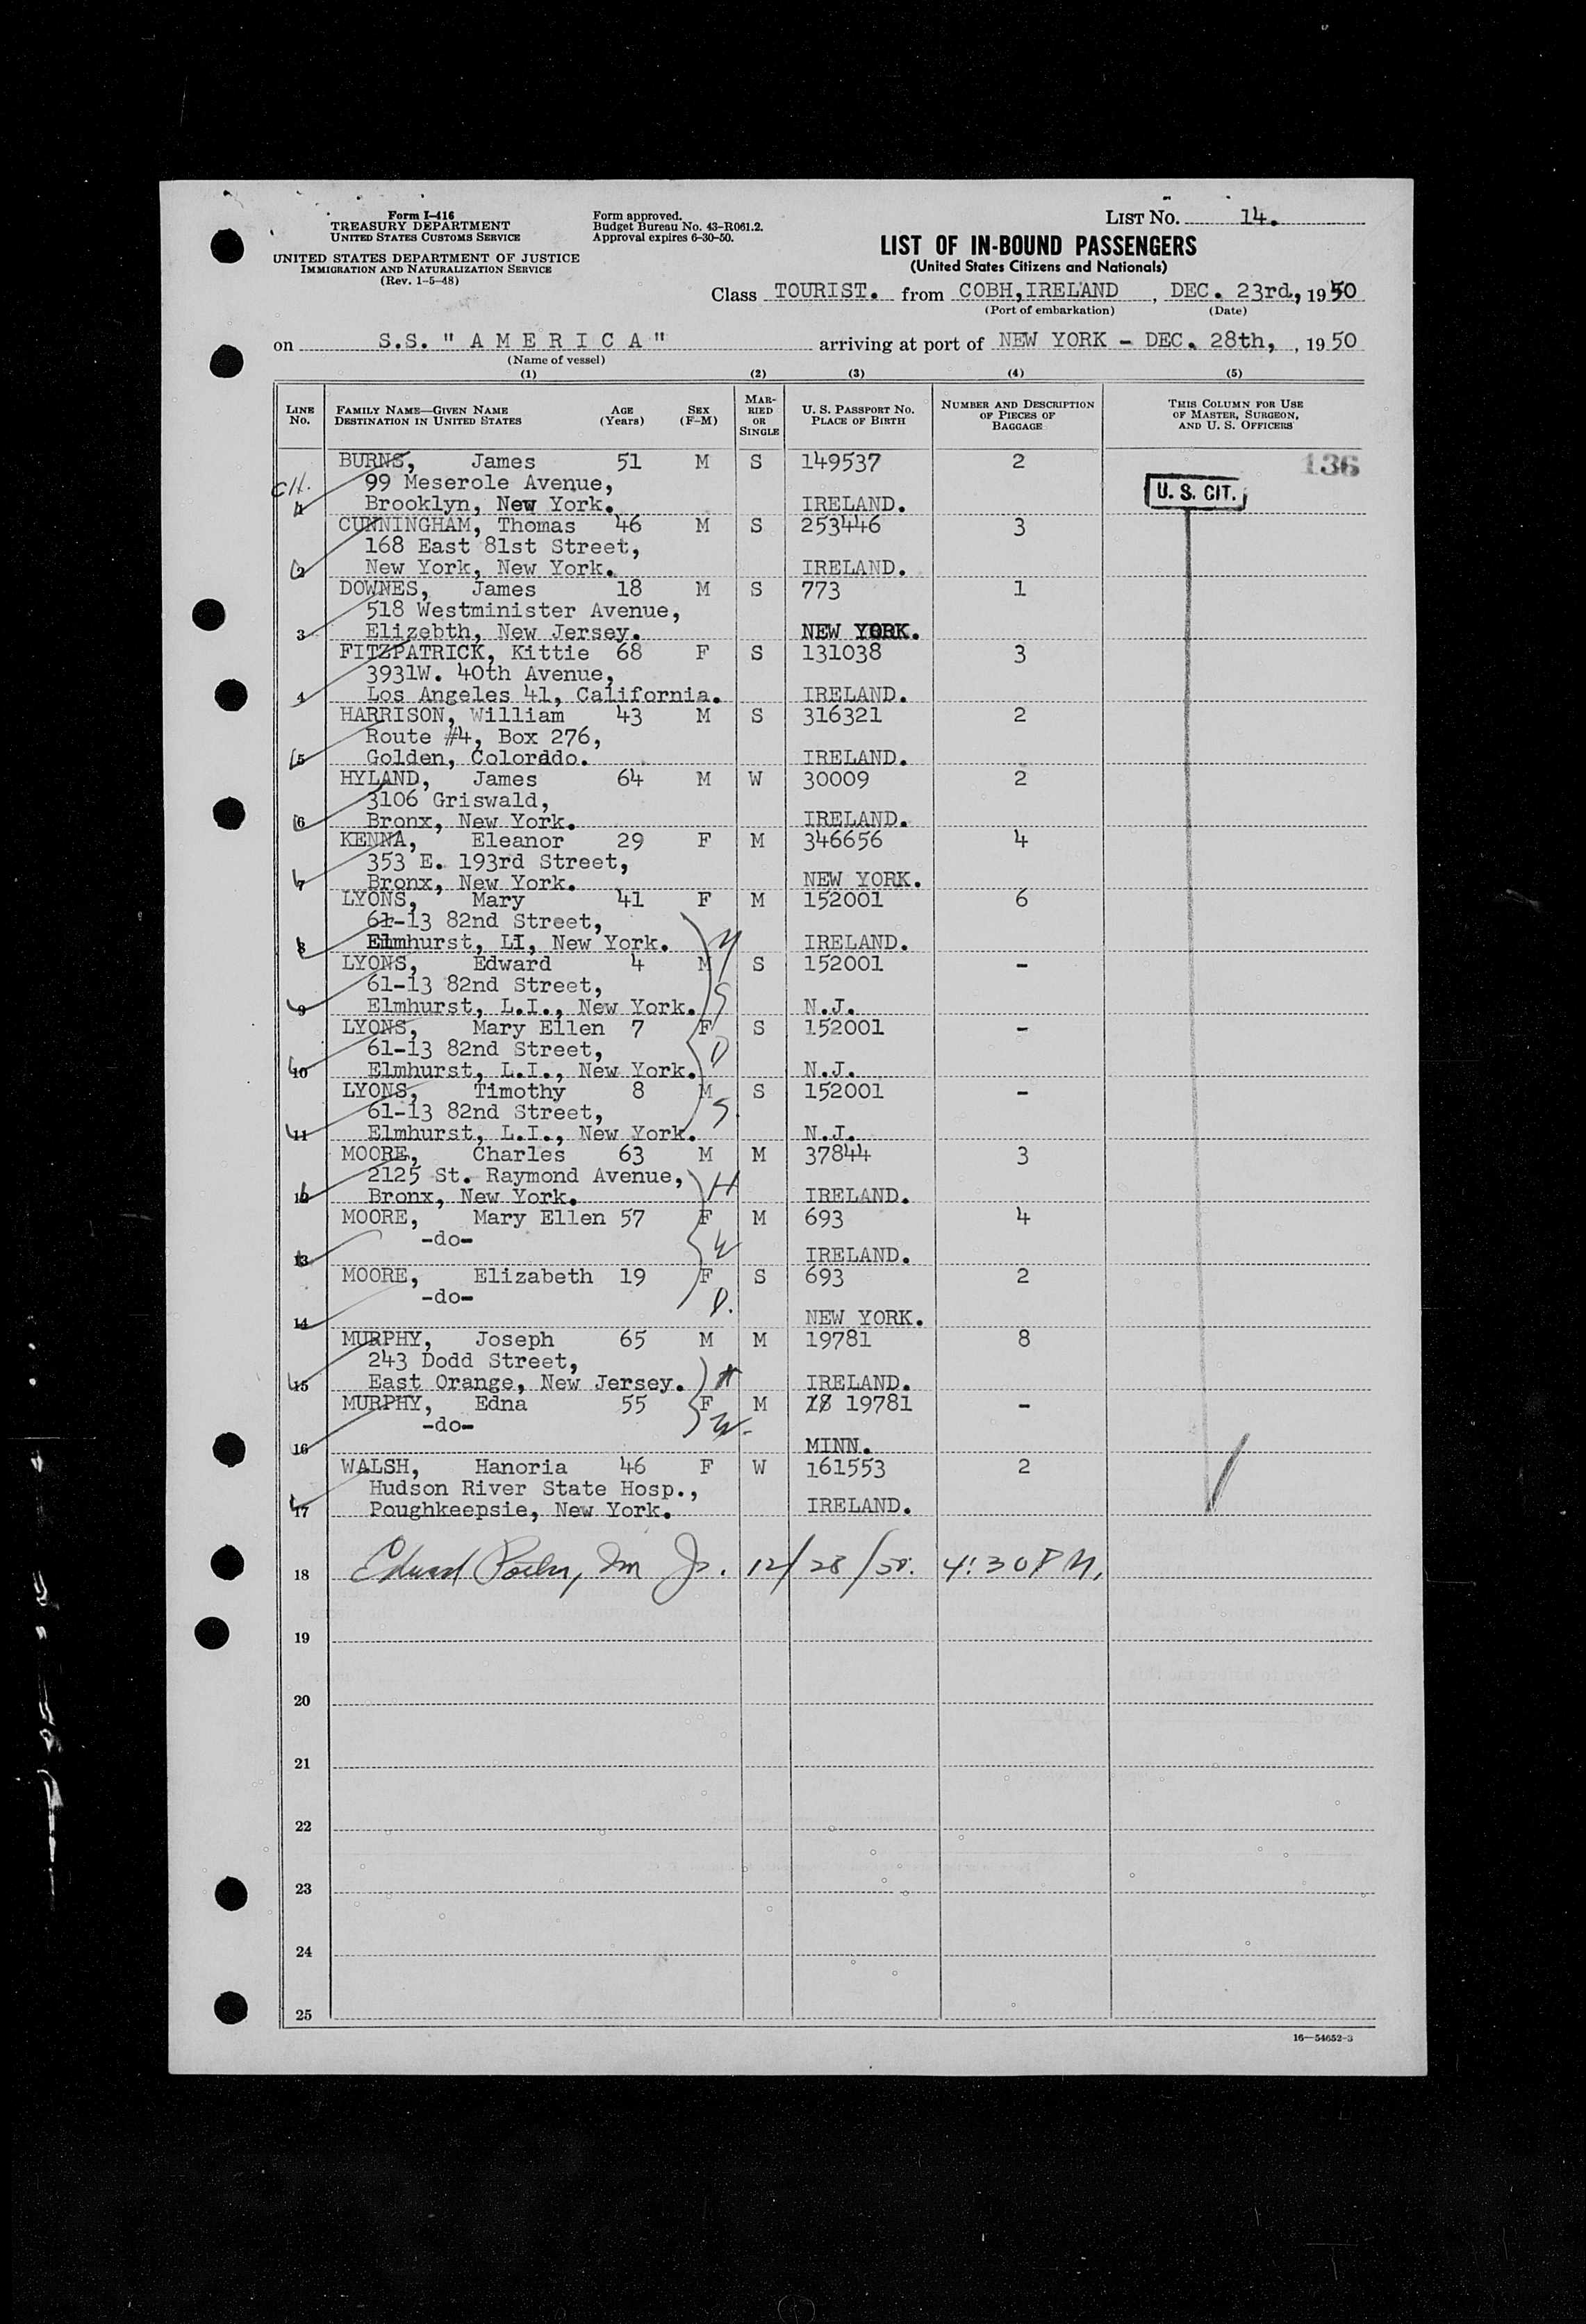 Form I-416
TREASURY DEPARTMENT
UNITED STATES CUSTOMS SERVICE
UNITED STATES DEPARTMENT OF JUSTICE
IMMIGRATION AND NATURALIZATION SERVICE
(Rev. 1-5-48)
Form approved.
Budget Bureau No. 43-R061.2.
Approval expires 6-30-50.
LIST NO. 14.
LIST OF IN-BOUND PASSENGERS
(United States Citizens and Nationals)
Class TOURIST. from COBH, IRELAND, DEC. 23rd., 1950
(Port of embarkation) (Date)
on S.S. " A M E R I C A " arriving at port of NEW YORK - DEC. 28th, , 1950
(Name of vessel)
(1) (2) (3) (4) (5)
LINE NO. FAMILY NAME—GIVEN NAME DESTINATION IN UNITED STATES AGE (Years) SEX (F-M) MARRIED OR SINGLE U. S. PASSPORT NO. PLACE OF BIRTH NUMBER AND DESCRIPTION OF PIECES OF BAGGAGE THIS COLUMN FOR USE OF MASTER, SURGEON, AND U. S. OFFICERS
BURNS, James 51 M S 149537 2 136
CH. 99 Meserole Avenue, U. S. CIT.
1 Brooklyn, New York. IRELAND.
CUNNINGHAM, Thomas 46 M S 253446 3
168 East 81st Street,
2 New York, New York. IRELAND.
DOWNES, James 18 M S 773 1
518 Westminister Avenue,
3 Elizebth, New Jersey. NEW YORK.
FITZPATRICK, Kittie 68 F S 131038 3
3931W. 40th Avenue,
4 Los Angeles 41, California. IRELAND.
HARRISON, William 43 M S 316321 2
Route #4, Box 276,
5 Golden, Colorado. IRELAND.
HYLAND, James 64 M W 30009 2
3106 Griswald,
6 Bronx, New York. IRELAND.
KENNA, Eleanor 29 F M 346656 4
353 E. 193rd Street,
7 Bronx, New York. NEW YORK.
LYONS, Mary 41 F M 152001 6
61-13 82nd Street,
8 Elmhurst, LI, New York. M IRELAND.
LYONS, Edward 4 M S 152001 -
61-13 82nd Street, S
9 Elmhurst, L.I., New York. N.J.
LYONS, Mary Ellen 7 F S 152001 -
61-13 82nd Street, D
10 Elmhurst, L.I., New York. N.J.
LYONS, Timothy 8 M S 152001 -
61-13 82nd Street, S
11 Elmhurst, L.I., New York. N.J.
MOORE, Charles 63 M M 37844 3
2125 St. Raymond Avenue, H
12 Bronx, New York. IRELAND.
MOORE, Mary Ellen 57 F M 693 4
-do- W
13 IRELAND.
MOORE, Elizabeth 19 F S 693 2
-do- D.
14 NEW YORK.
MURPHY, Joseph 65 M M 19781 8
243 Dodd Street,
15 East Orange, New Jersey. H IRELAND.
MURPHY, Edna 55 F M 18 19781 -
-do- W.
16 MINN.
WALSH, Hanoria 46 F W 161553 2
Hudson River State Hosp.,
17 Poughkeepsie, New York. IRELAND.
18 Edward 12/28/50. 4:30 P M.
19
20
21
22
23
24
25
16—54652-3